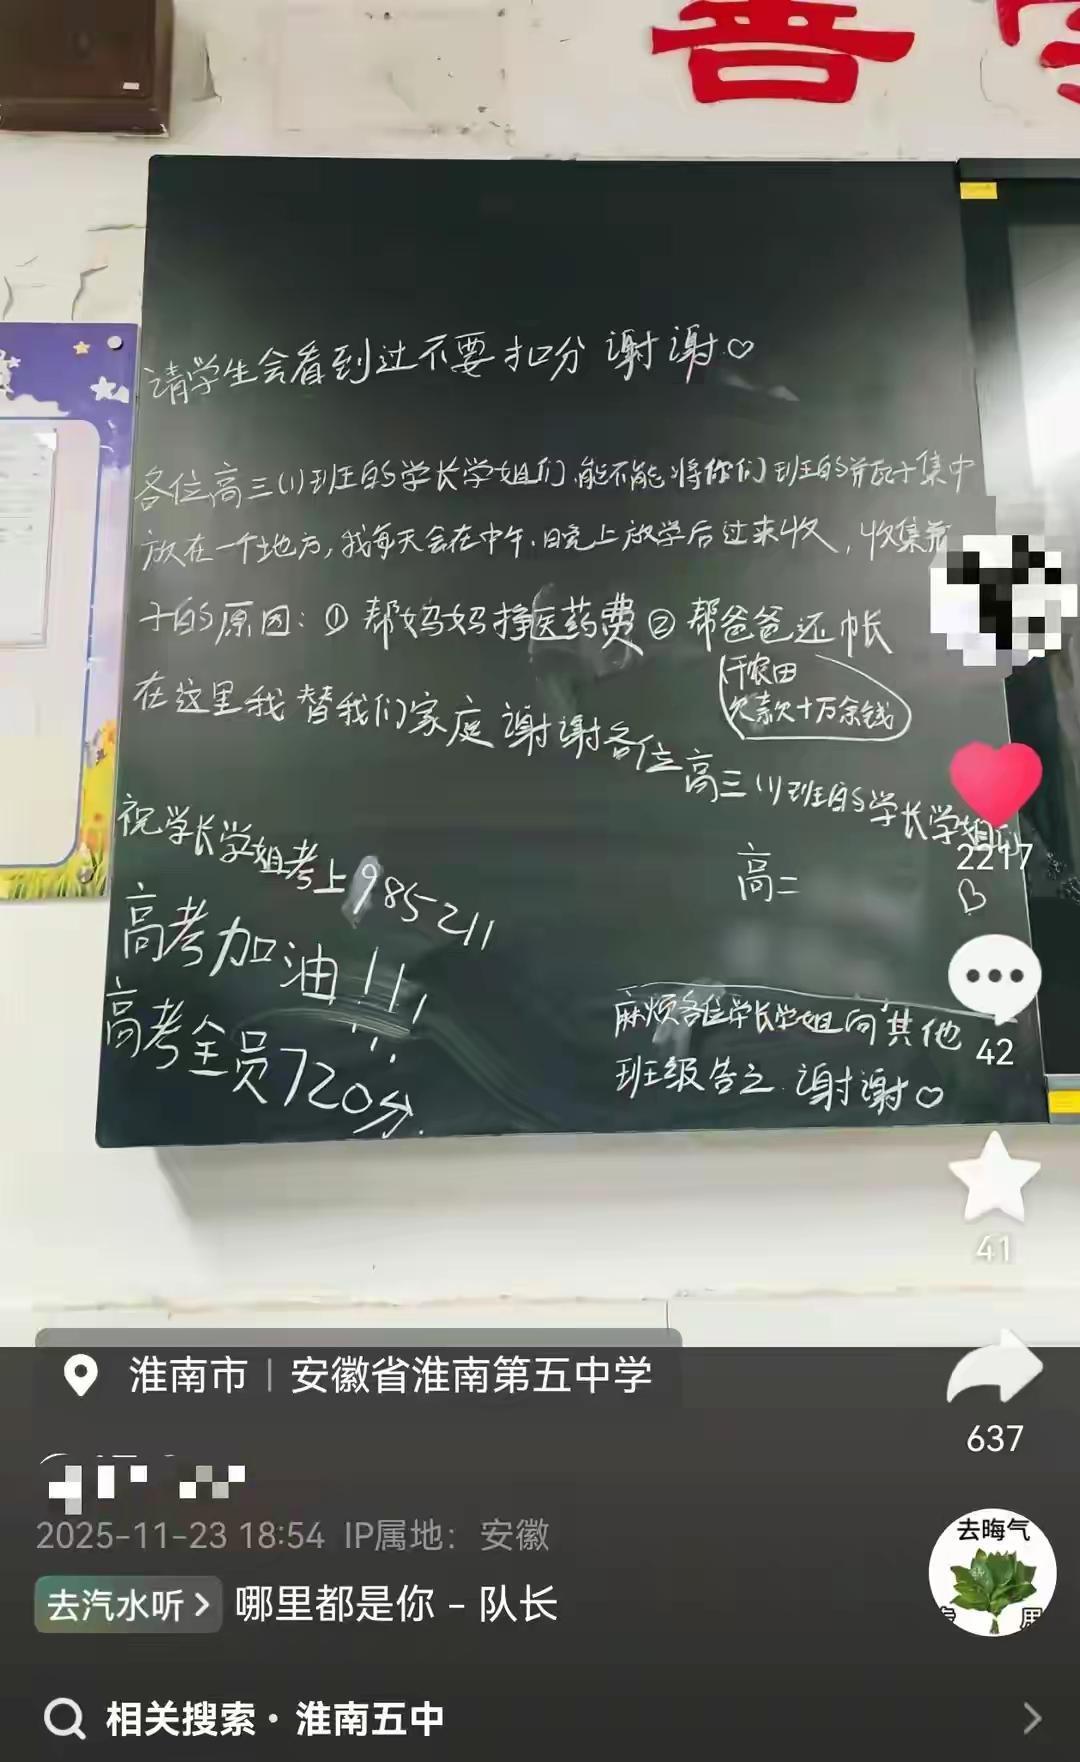 请学生会看到过不要扣分 谢谢♡
各位高三(1)班的学长学姐们,能不能将你们班的并瓦子集中
放在一个地方,我每天会在中午、晚上放学后过来收,收集瓶
子的原因:① 帮妈妈挣医药费 ② 帮爸爸还帐
(干农田
欠款十万余钱)
在这里我替我们家庭谢谢各位高三(1)班的学长学姐们
高二
祝学长学姐考上985 211
高考加油!!!
高考全员720分.
麻烦各位学长学姐向其他
班级告之 谢谢♡
2217
42
41
637
淮南市 | 安徽省淮南第五中学
2025-11-23 18:54 IP属地:安徽
去汽水听 > 哪里都是你 - 队长
去晦气
相关搜索· 淮南五中